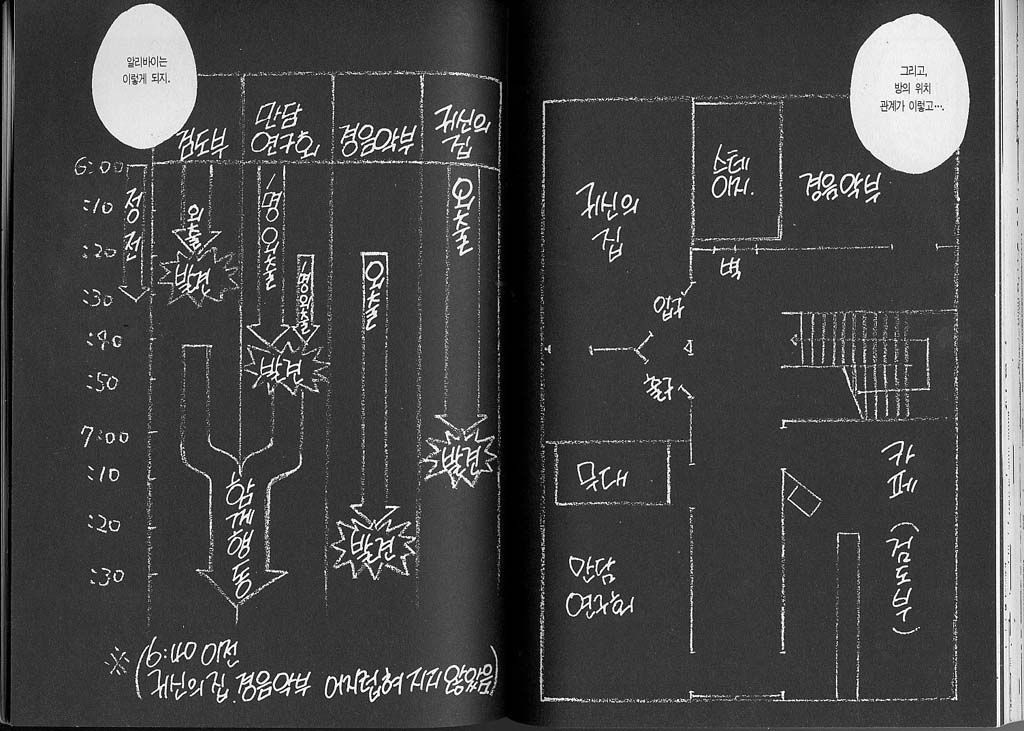 알리바이는
이렇게 되지.
검도부
만담
연구회
경음악부
귀신의
집
6:00
:10
:20
:30
:40
:50
7:00
:10
:20
:30
정전
외출
발견
1명 외출
1명 외출
발견
외출
발견
외출
발견
함께 행동
※(6:40 이전
귀신의 집. 경음악부 어지럽혀 지지 않았음)
그리고,
방의 위치
관계가 이렇고….
귀신의
집
스테
이지.
경음악부
벽
입구
출구
무대
만담
연구회
카페 (검도부)